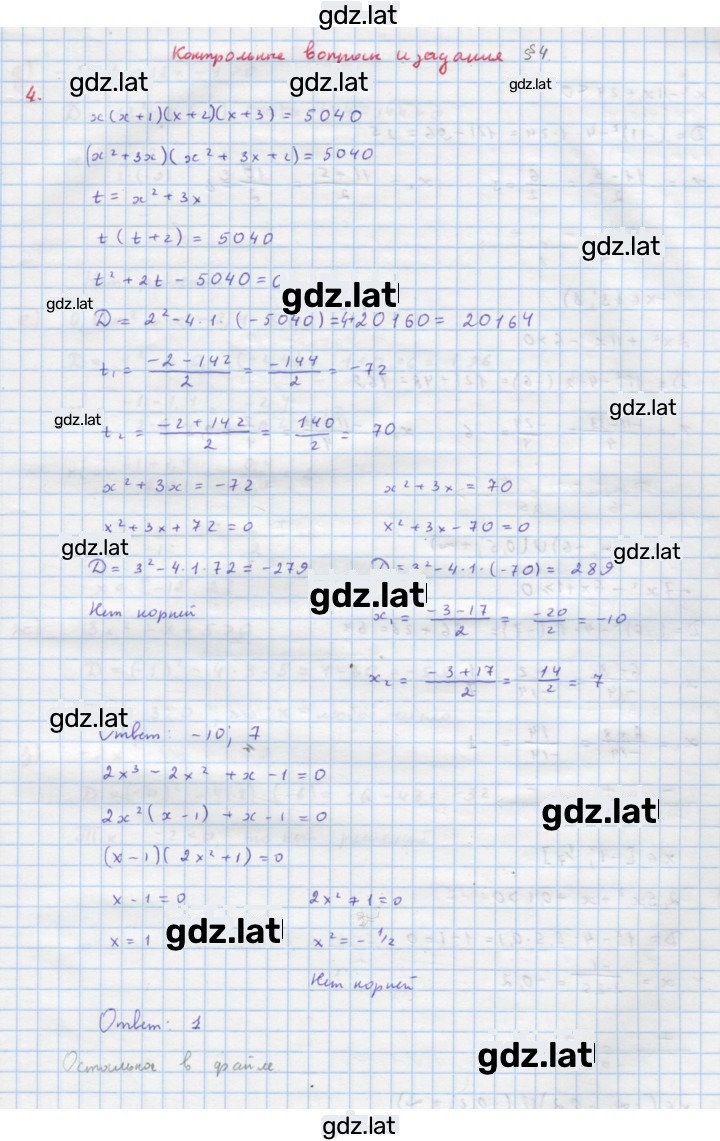 gdz.lat
Контрольные вопросы и задания §4.
gdz.lat gdz.lat gdz.lat
4.
x(x+1)(x+2)(x+3) = 5040
(x²+3x)(x²+3x+2) = 5040
t = x²+3x
t(t+2) = 5040
gdz.lat
t² + 2t - 5040 = 0
gdz.lat gdz.lat
D = 2²-4·1·(-5040)=4+20160= 20164
t₁ = (-2-142)/2 = (-144)/2 = -72
gdz.lat gdz.lat
t₂ = (-2+142)/2 = 140/2 = 70
x²+3x = -72 x²+3x = 70
x²+3x+72 = 0 x²+3x-70=0
gdz.lat gdz.lat
D = 3²-4·1·72 = -279 D = 3²-4·1·(-70) = 289
gdz.lat
Нет корней x₁ = (-3-17)/2 = (-20)/2 = -10
x₂ = (-3+17)/2 = 14/2 = 7
gdz.lat
Ответ: -10; 7
2x³ - 2x² + x - 1 = 0
gdz.lat
2x²(x-1) + x - 1 = 0
(x-1)(2x²+1) = 0
x - 1 = 0 2x²+1=0
x = 1 gdz.lat x² = -1/2
Нет корней
Ответ: 1
gdz.lat
Остальное в файле
gdz.lat